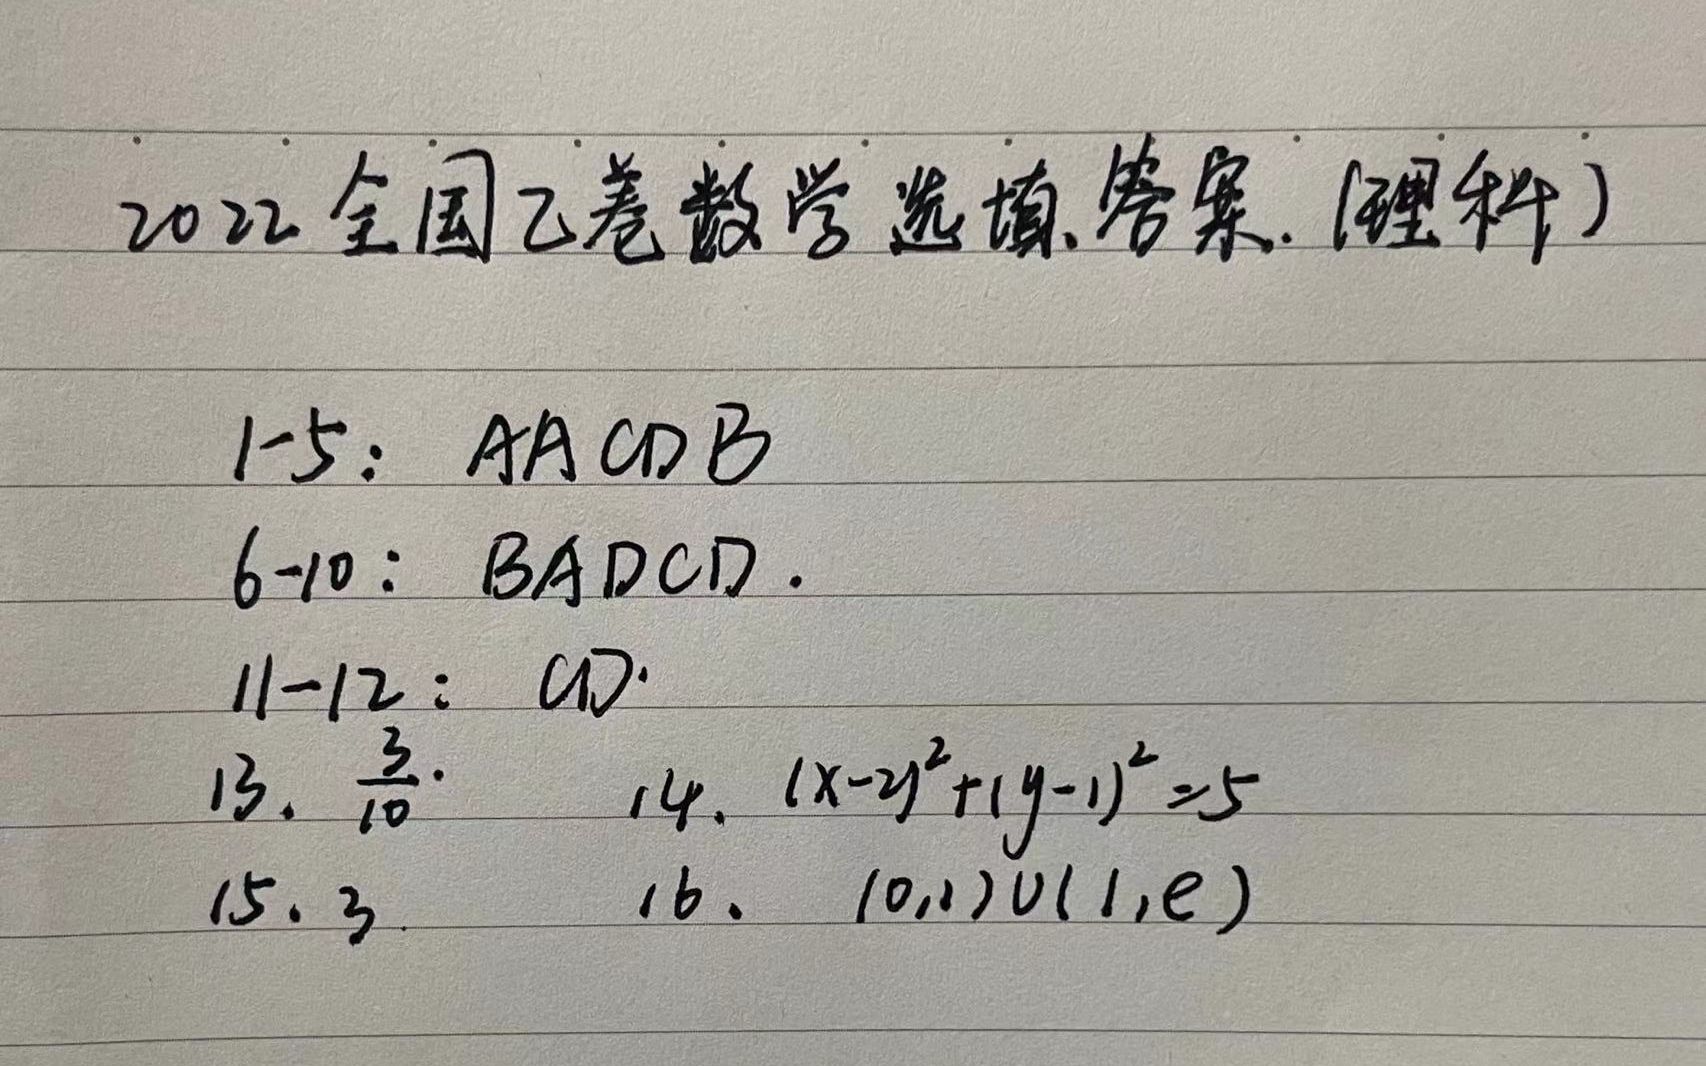 2022全国乙卷数学选填答案.(理科)
1-5: AACDB
6-10: BADCD.
11-12: CD.
13. 3/10. 14. (x-2)²+(y-1)²=5
15. 3. 16. (0,1)U(1,e)